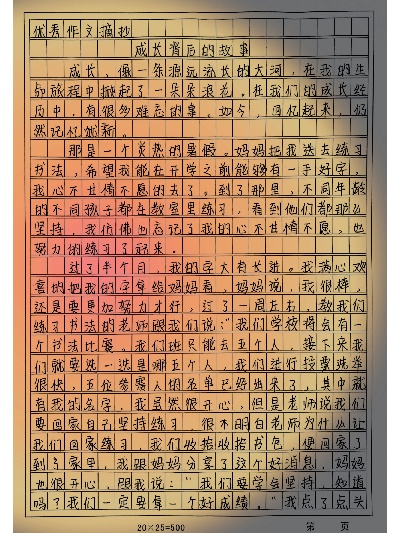 优秀作文摘抄
成长背后的故事
成长,像一条源远流长的大河,在我的生
命旅程中掀起了一朵朵浪花。在我们的成长经
历中,有很多难忘的事。如今,回忆起来,仍
然记忆犹新。
那是一个炎热的暑假。妈妈把我送去练习
书法,希望我能在开学之前能够有一手好字。
我心不甘情不愿的去了。到了那里,不同年龄
的不同孩子都在教室里练习,看到他们都那么
坚持,我仿佛也忘记了我的心不甘情不愿。也
努力的练习了起来。
过了半个月,我的字大有长进。我满心欢
喜的把我的字拿给妈妈看,妈妈说,我很棒,
还是要更加努力才行,过了一周左右,教我们
练习书法的老师跟我们说:“我们学校将会有一
个书法比赛。我们班只能去五个人,接下来我
们就要选一选是哪五个人,我们进行接票选举
很快,五位参赛人的名单已经出来了,其中就
有我的名字,我虽然很开心,但是老师说我们
要回家自己坚持练习,很不明白老师为什么让
我们回家练习,我们收拾收拾书包,便回家了
到了家里,我跟妈妈分享了这个好消息,妈妈
也很开心,跟我说:“我们要学会坚持,知道
吗?我们一定要拿一个好成绩。”我点了点头
20×25=500
第 页